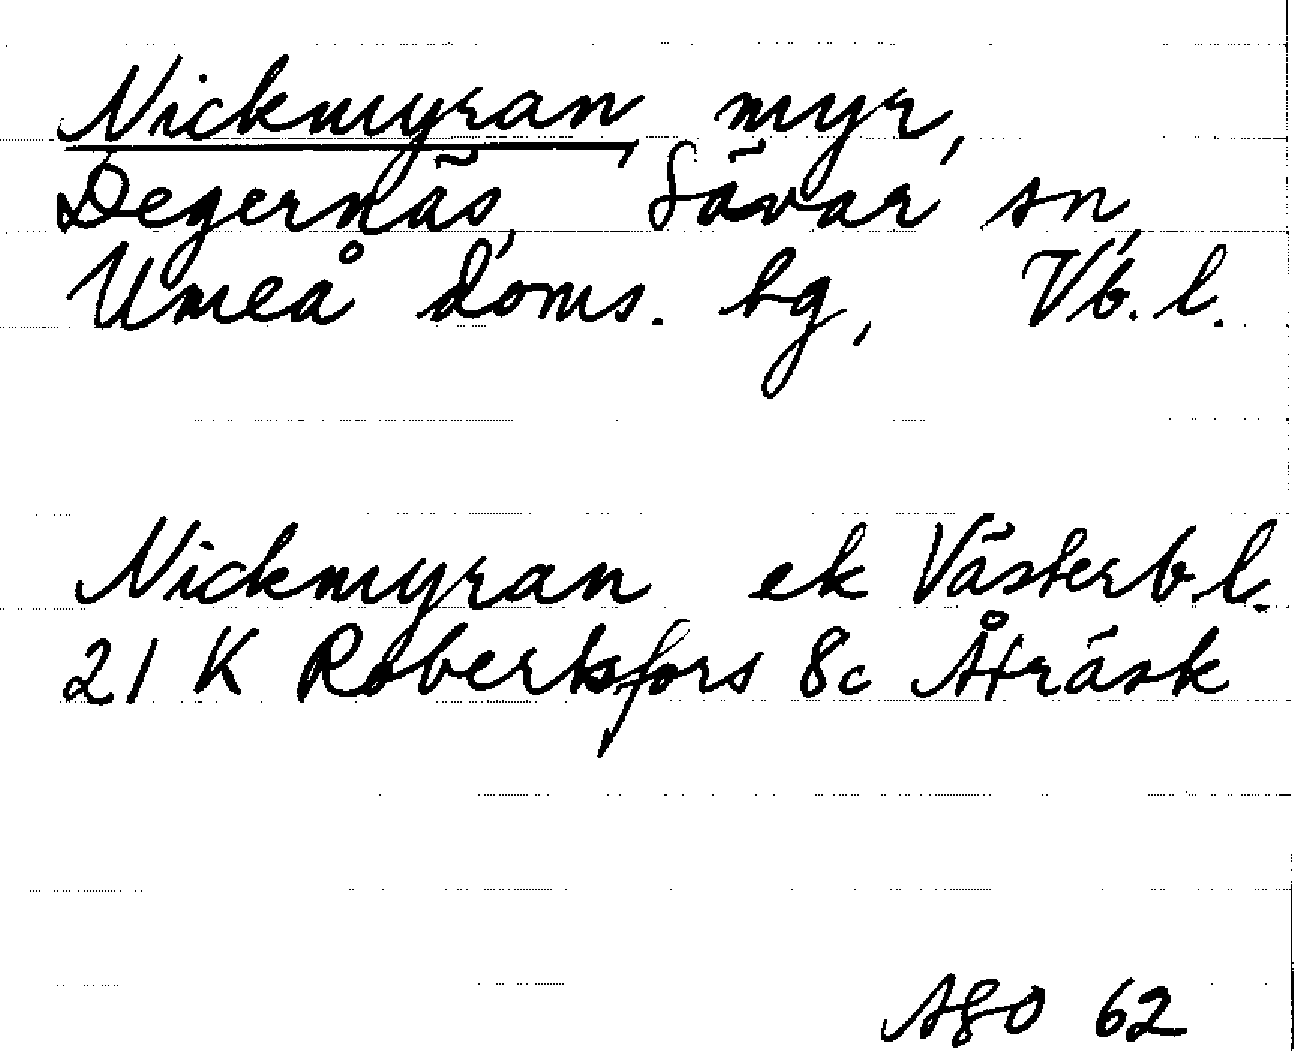 Nickmyran, myr,
Degernäs, Sävar sn,
Umeå doms. hg, Vb. l.
Nickmyran ek Västerb. l.
21 K Robertsfors 8c Åträsk
AGO 62